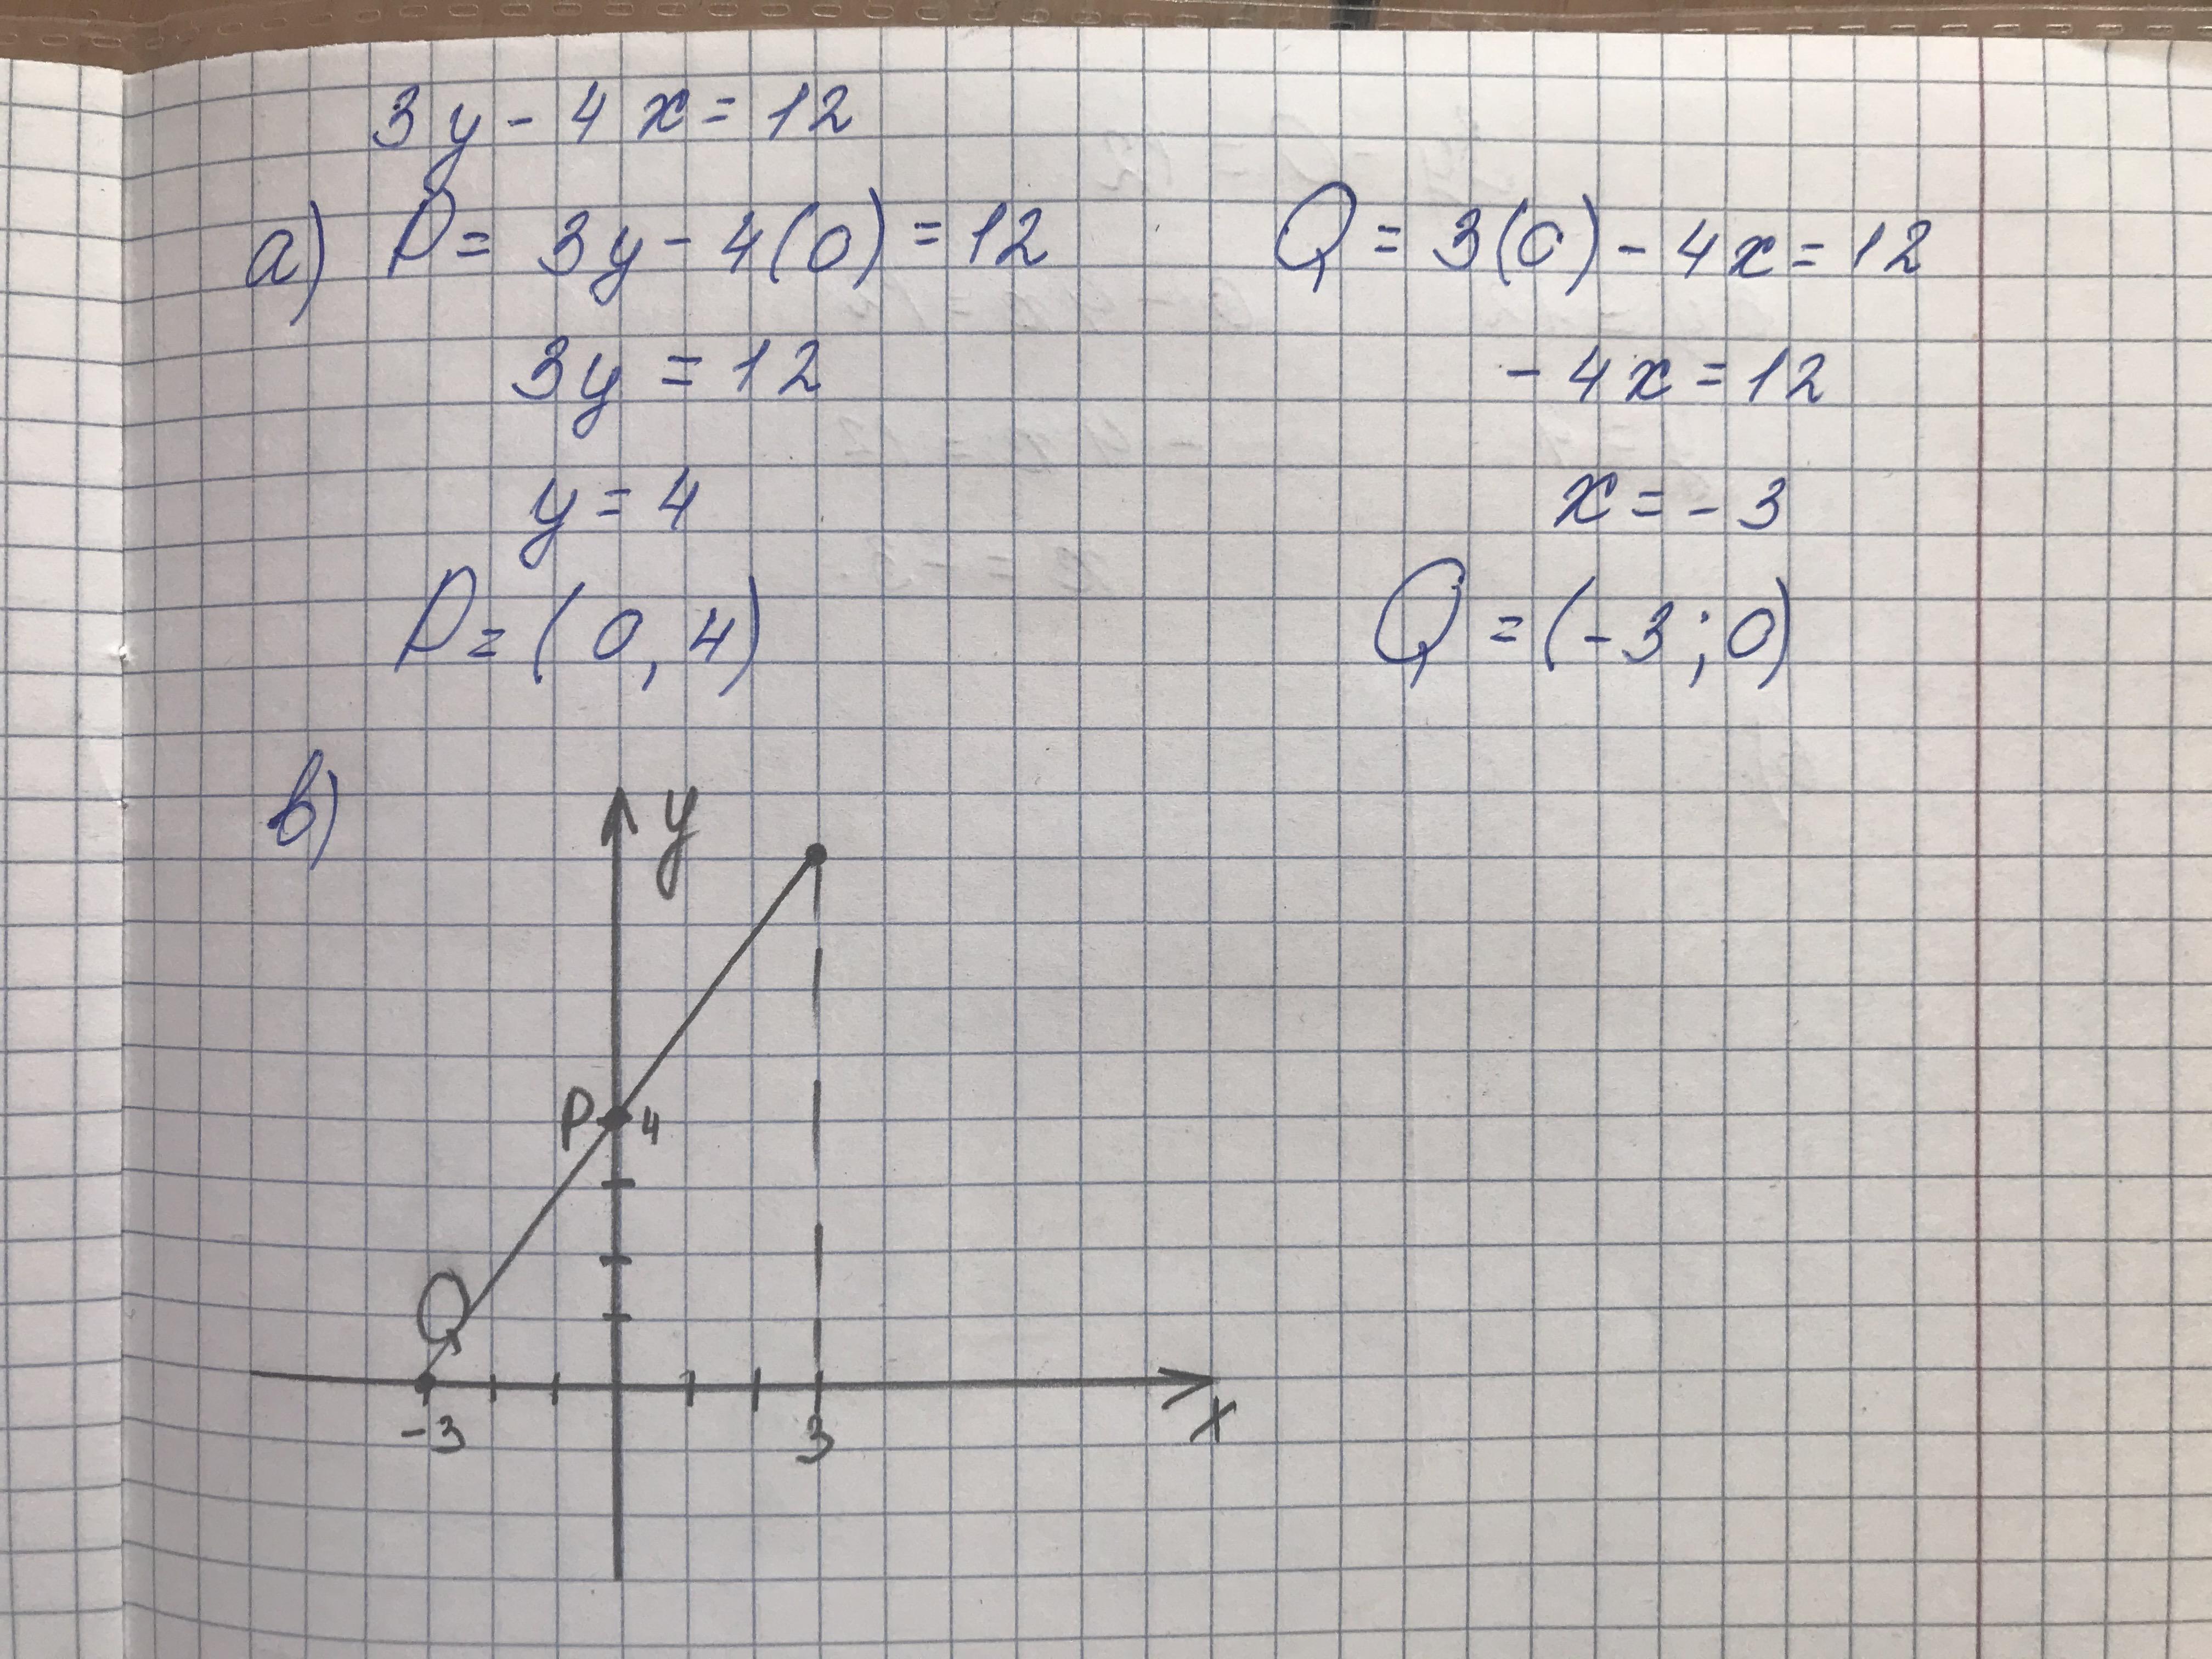 3y - 4x = 12
a) P = 3y - 4(0) = 12
3y = 12
y = 4
P = (0, 4)
Q = 3(0) - 4x = 12
-4x = 12
x = -3
Q = (-3; 0)
b)
y
P 4
Q
-3 3
x